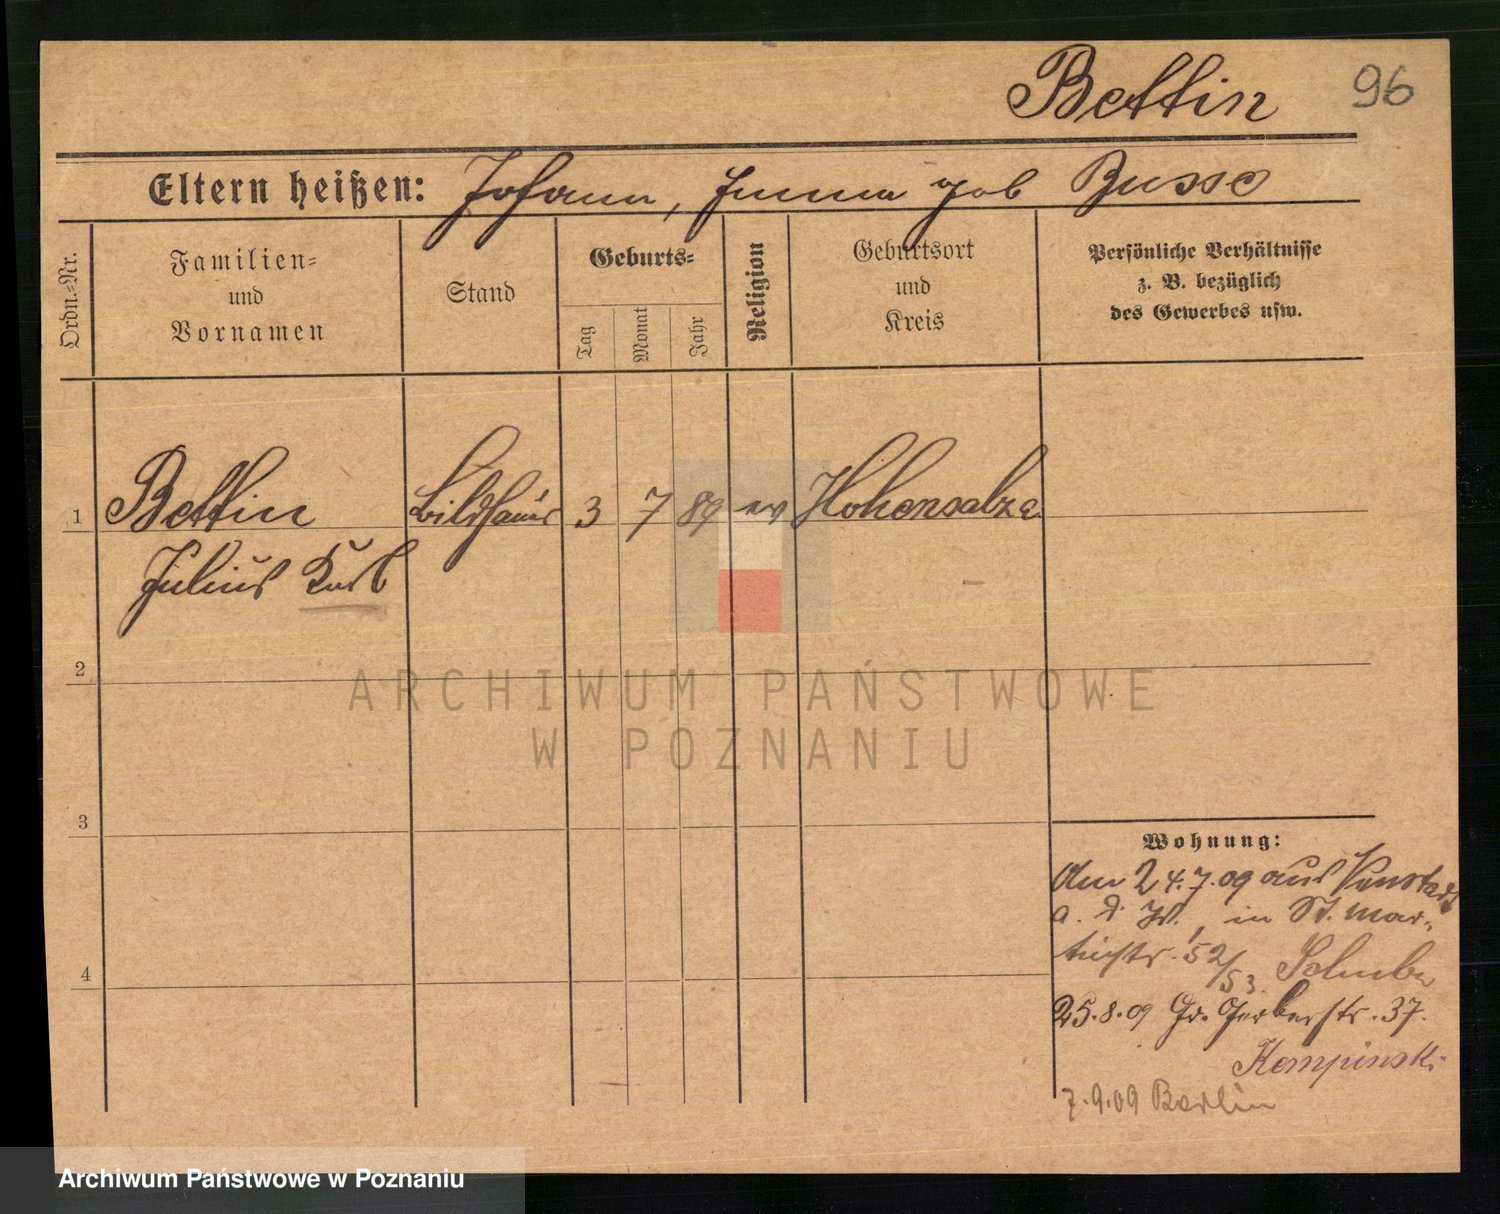 Bettin 96
Eltern heißen: Johann, Emma geb Busse
Ordn.-Nr.
Familien-
und
Vornamen
Stand
Geburts-
Tag
Monat
Jahr
Religion
Geburtsort
und
Kreis
Persönliche Verhältnisse
z. B. bezüglich
des Gewerbes usw.
1 Bettin Bildhauer 3 7 89 ev Hohensalza
Julius Karl
2
ARCHIWUM PAŃSTWOWE
W POZNANIU
3
Wohnung:
Am 24.7.09 aus
a. d. W., in St. Mar-
tinstr. 52/53. Schulz
25.8.09 Gr. Gerberstr. 37.
4
Kempinski
7.9.09 Berlin
Archiwum Państwowe w Poznaniu